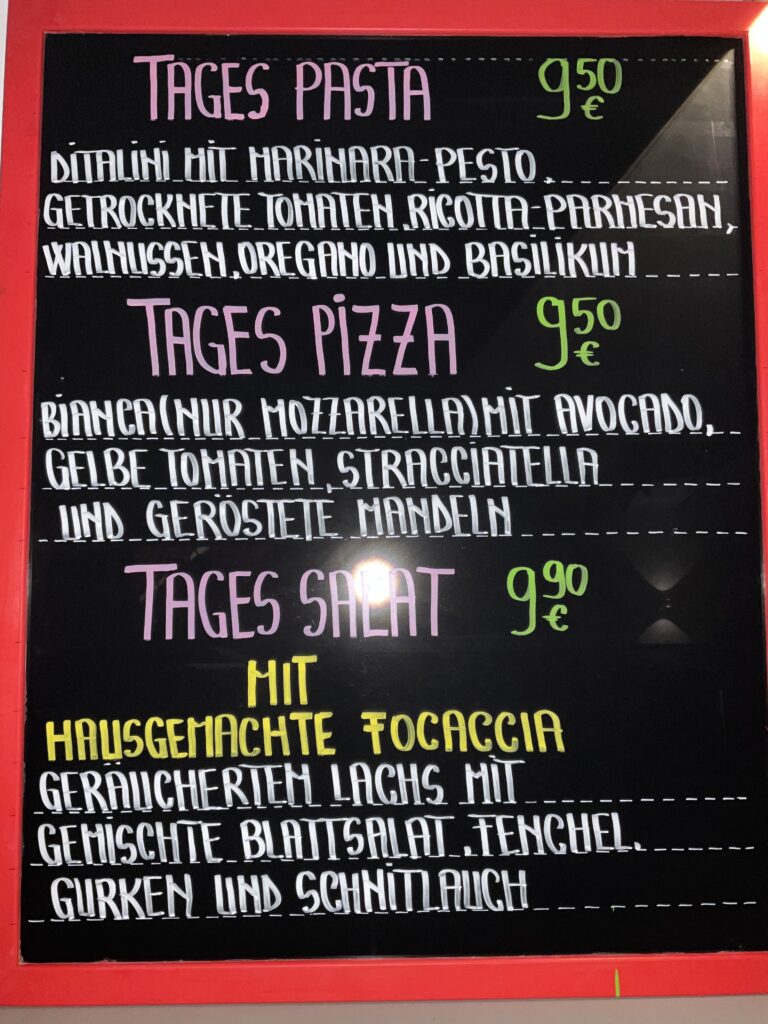 TAGES PASTA 9.50 €
DITALINI MIT MARINARA-PESTO,
GETROCKNETE TOMATEN, RICOTTA-PARMESAN,
WALNUSSEN, OREGANO UND BASILIKUM
TAGES PIZZA 9.50 €
BIANCA (NUR MOZZARELLA) MIT AVOCADO,
GELBE TOMATEN, STRACCIATELLA
UND GERÖSTETE MANDELN
TAGES SALAT 9.90 €
MIT
HAUSGEMACHTE FOCACCIA
GERÄUCHERTEM LACHS MIT
GEMISCHTE BLATTSALAT, FENCHEL,
GURKEN UND SCHNITLAUCH